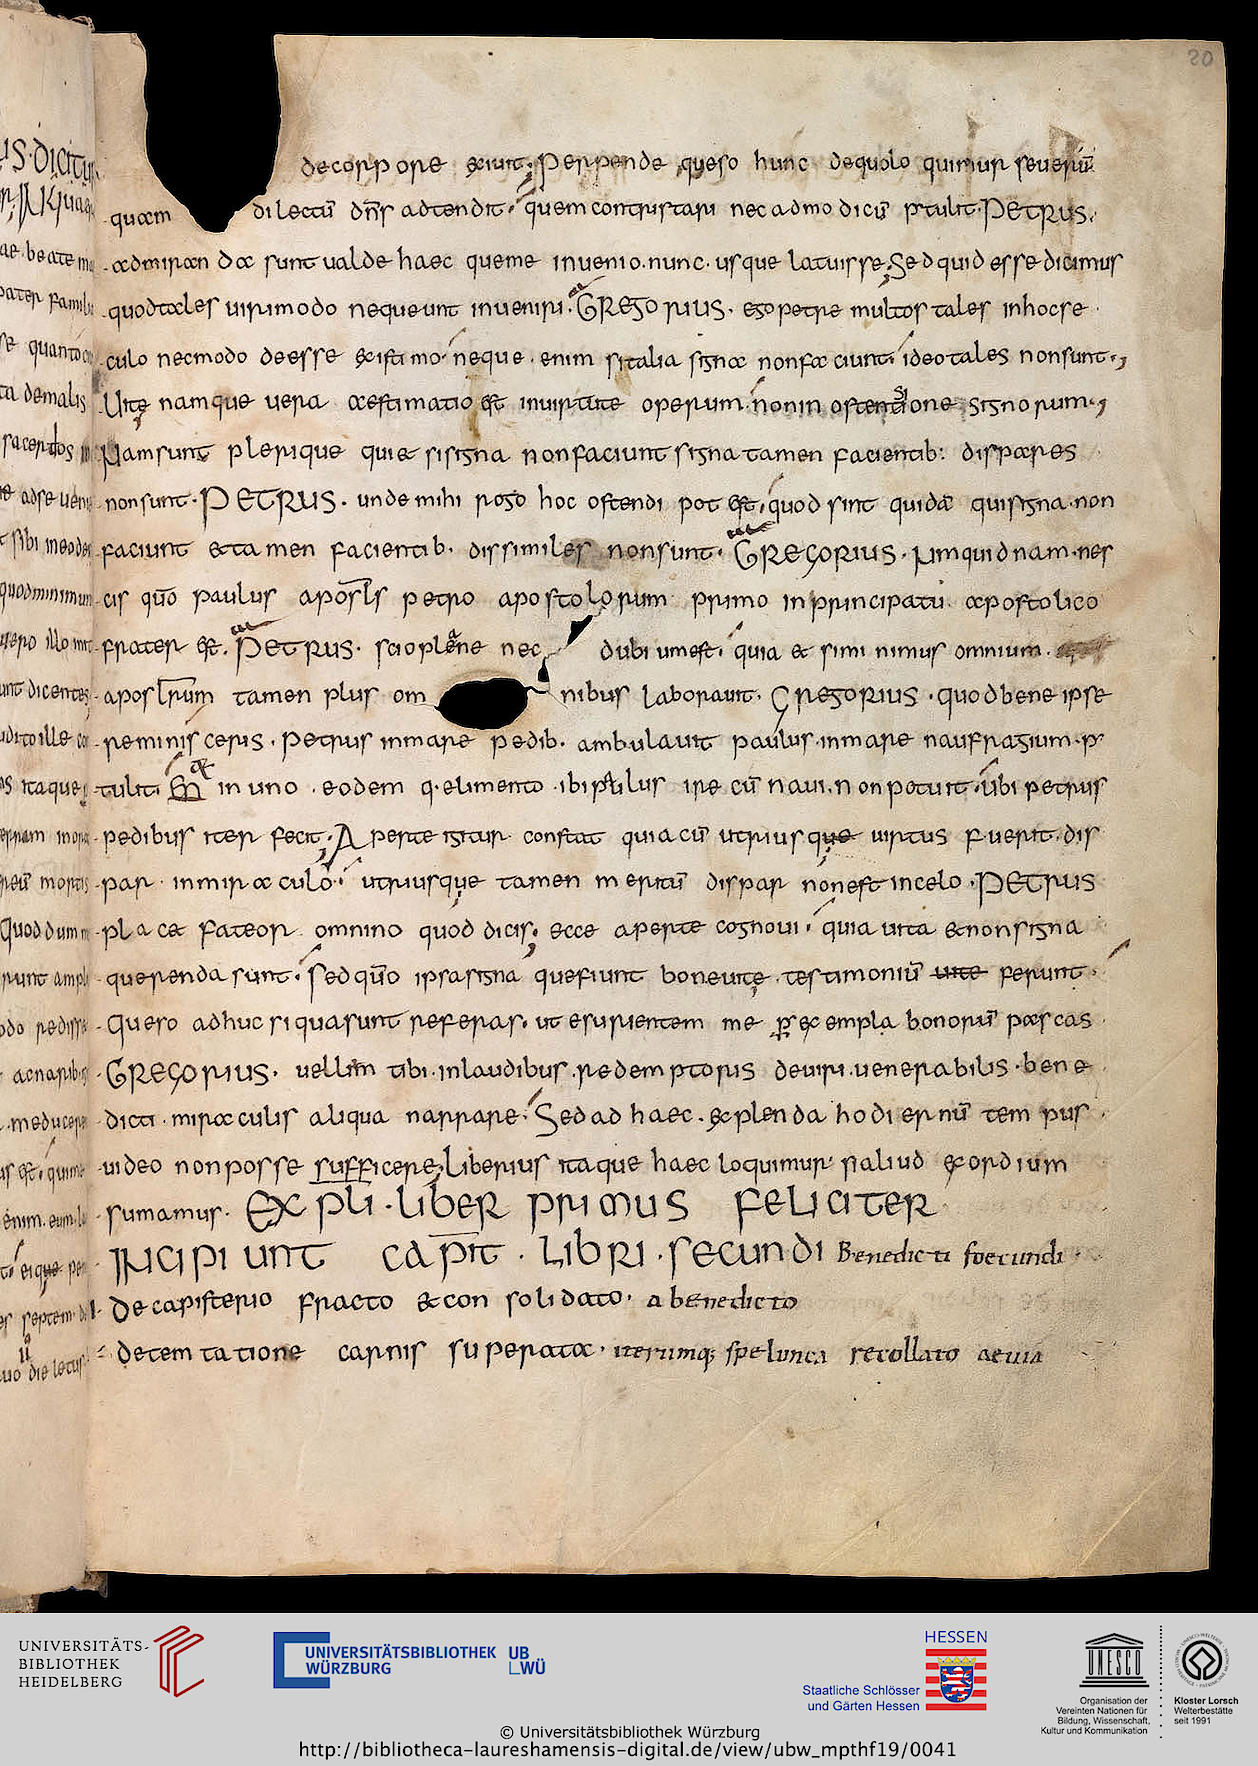 20
decorpore exiunt; Perpende queso hunc dequolo quimur seuerūm
quam dilectū dn̄s adtendit. quem contristari nec admodicū ptulit. PETRUS.
admiranda sunt ualde haec queme inuenio. nunc. usque latuisse; Sed quid esse dicimus
quodtales uirimodo nequeunt inueniri. GREGORIUS. egopetre multos tales inhocse
culo necmodo deesse existimo. neque. enim sitalia signa nonfaciunt. ideotales nonsunt.,
Uitę namque uera aestimatio est inuirtute operum. nonin ostensione signorum.,
Namsunt plerique quiæ sisigna nonfaciunt signa tamen facientib: dispares
nonsunt. PETRUS. unde mihi rogo hoc ostendi potest. quod sint quidā quisigna. non
faciunt etamen facientib. dissimiles nonsunt. GREGORIUS. Numquidnam. nes
cis quō paulus aposl̄s petro apostolorum primo inprincipatu apostolico
frater est. PETRUS. scioplane nec dubiumest. quia et simi nimus omnium.
aposl̄rum tamen plus om nibus laborauit. GREGORIUS. quodbene ipse
reminisceris. Petrus inmare pedib. ambulauit paulus. inmare naufragium. p
tulit. in uno. eodem q. elimento. ibi paulus ire cū naui. non potuit. ubi petrus
pedibus iter fecit; Aperte igitur constat quia cū utriusque uirtus fuerit. dis
par. inmiraculo. utriusque tamen meritū dispar nonest incelo. PETRUS
placet fateor omnino quod dicis; ecce aperte cognoui. quia uita etnonsigna
querenda sunt. Sed quō ipsasigna quefiunt boneuitę. testimoniū uite ferunt.
Quero adhuc si quasunt referas. ut esurientem me p exempla bonorū pascas.
GREGORIUS. uellim tibi. inlaudibus. redemptoris deuiri. uenerabilis. bene
dicti. miraculis aliqua narrare. Sed ad haec. explenda hodiernū tempus.
uideo nonposse sufficere; Liberius itaque haec loquimur si aliud exordium
sumamus. EXPLI. LIBER PRIMUS FELICITER
INCIPIUNT CAPIT̄. LIBRI. SECUNDI Benedicti foecundi.
I. De capisterio fracto etcon solidato. a benedicto
detemtatione carnis superata. iterumq; spelunca recollato aeuia
UNIVERSITÄTS-
BIBLIOTHEK
HEIDELBERG
UNIVERSITÄTSBIBLIOTHEK
WÜRZBURG
UB
WÜ
HESSEN
Staatliche Schlösser
und Gärten Hessen
UNESCO
Organisation der
Vereinten Nationen für
Bildung, Wissenschaft,
Kultur und Kommunikation
Kloster Lorsch
Welterbestätte
seit 1991
© Universitätsbibliothek Würzburg
http://bibliotheca-laureshamensis-digital.de/view/ubw_mpthf19/0041